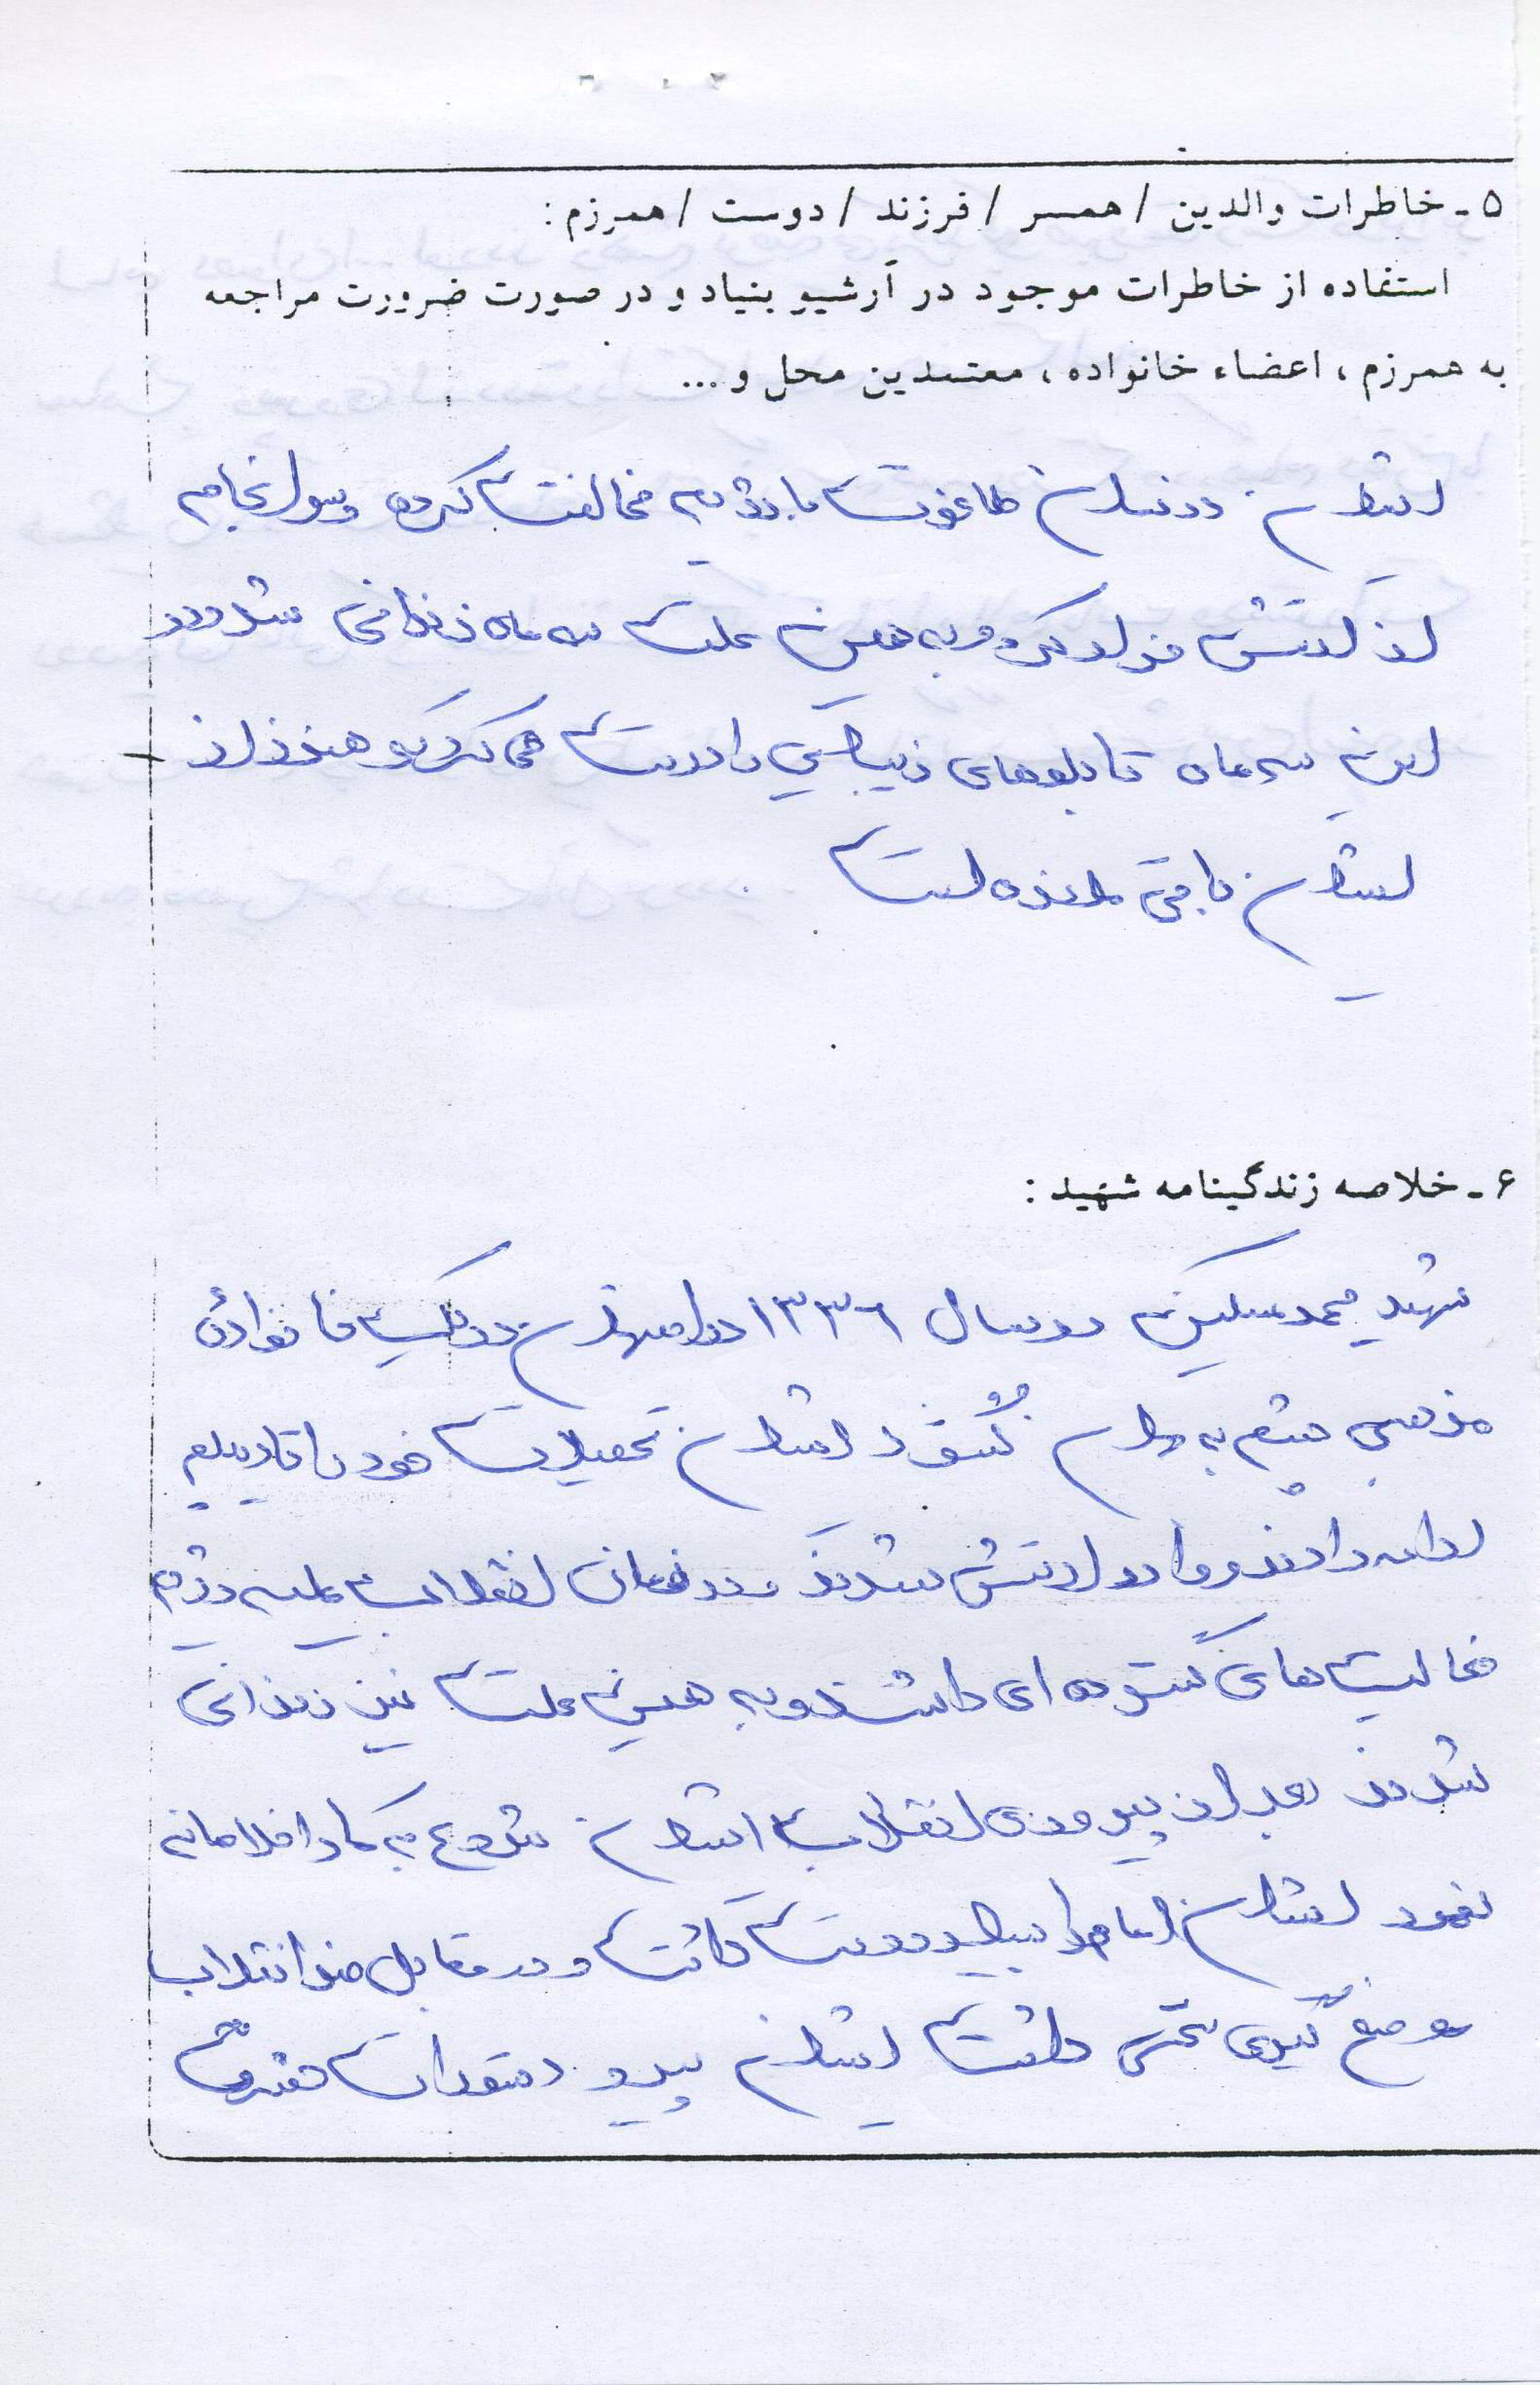 ۵ - خاطرات والدین / همسر / فرزند / دوست / همرزم :
استفاده از خاطرات موجود در آرشیو بنیاد و در صورت ضرورت مراجعه
به همرزم ، اعضاء خانواده ، معتمدین محل و ...
ایشان در زمان طاغوت با رژیم مخالفت کرده و سرانجام
از ارتش فرار کرد و به همین علت سه ماه زندانی شد در
این سه ماه تابلوهای زیبایی را درست می کرد که هنوز از
ایشان باقی مانده است
۶ - خلاصه زندگینامه شهید :
شهید محمد مسکین در سال ۱۳۳۶ در اصفهان در یک خانواده
مذهبی چشم به جهان گشود ایشان تحصیلات خود را تا دیپلم
ادامه دادند و وارد ارتش شدند و در زمان انقلاب علیه رژیم
فعالیت های گسترده ای داشتند و به همین علت نیز زندانی
شدند بعد از پیروزی انقلاب ایشان شروع به کار
نمود ایشان امام را بسیار دوست داشت و در مقابل ضد انقلاب
موضع گیری سختی داشت ایشان پیرو دستورات حضرت